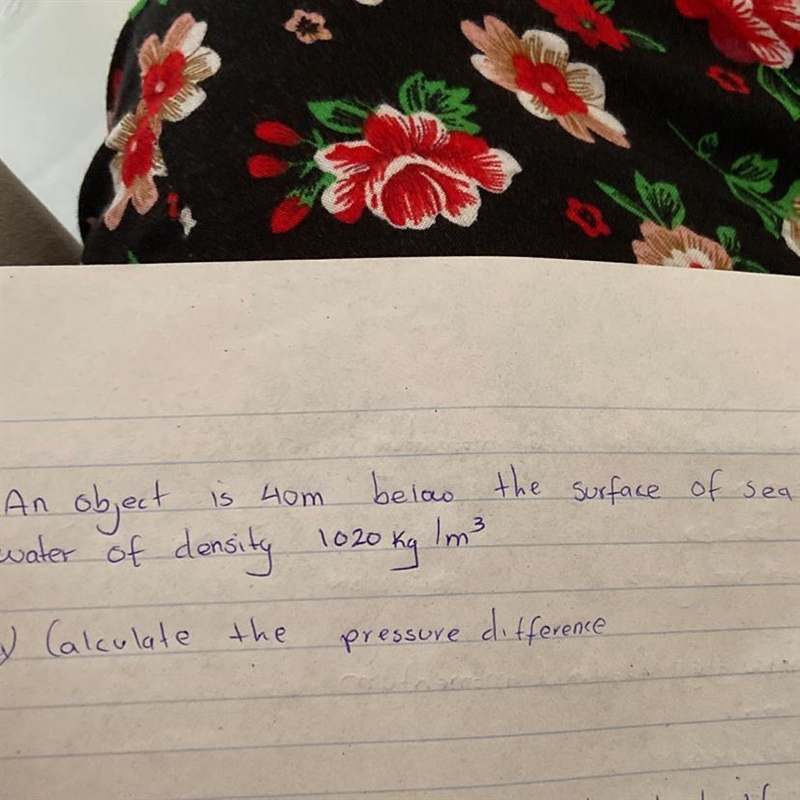 An object is 40m below the surface of sea
water of density 1020 kg/m³
) Calculate the pressure difference